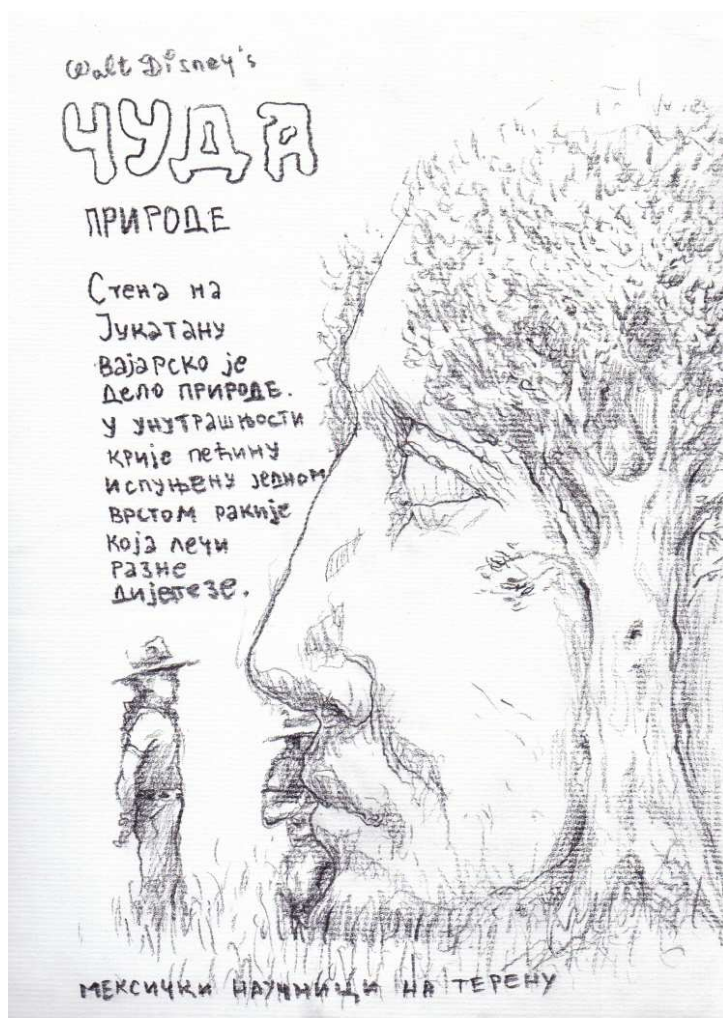 Walt Disney's
ЧУДА
ПРИРОДЕ
Стена на
Јукатану
вајарско је
дело природе.
у унутрашњости
крије пећину
испуњену једном
врстом ракије
која лечи
разне
дијетезе.
МЕКСИЧКИ НАУЧНИЦИ НА ТЕРЕНУ